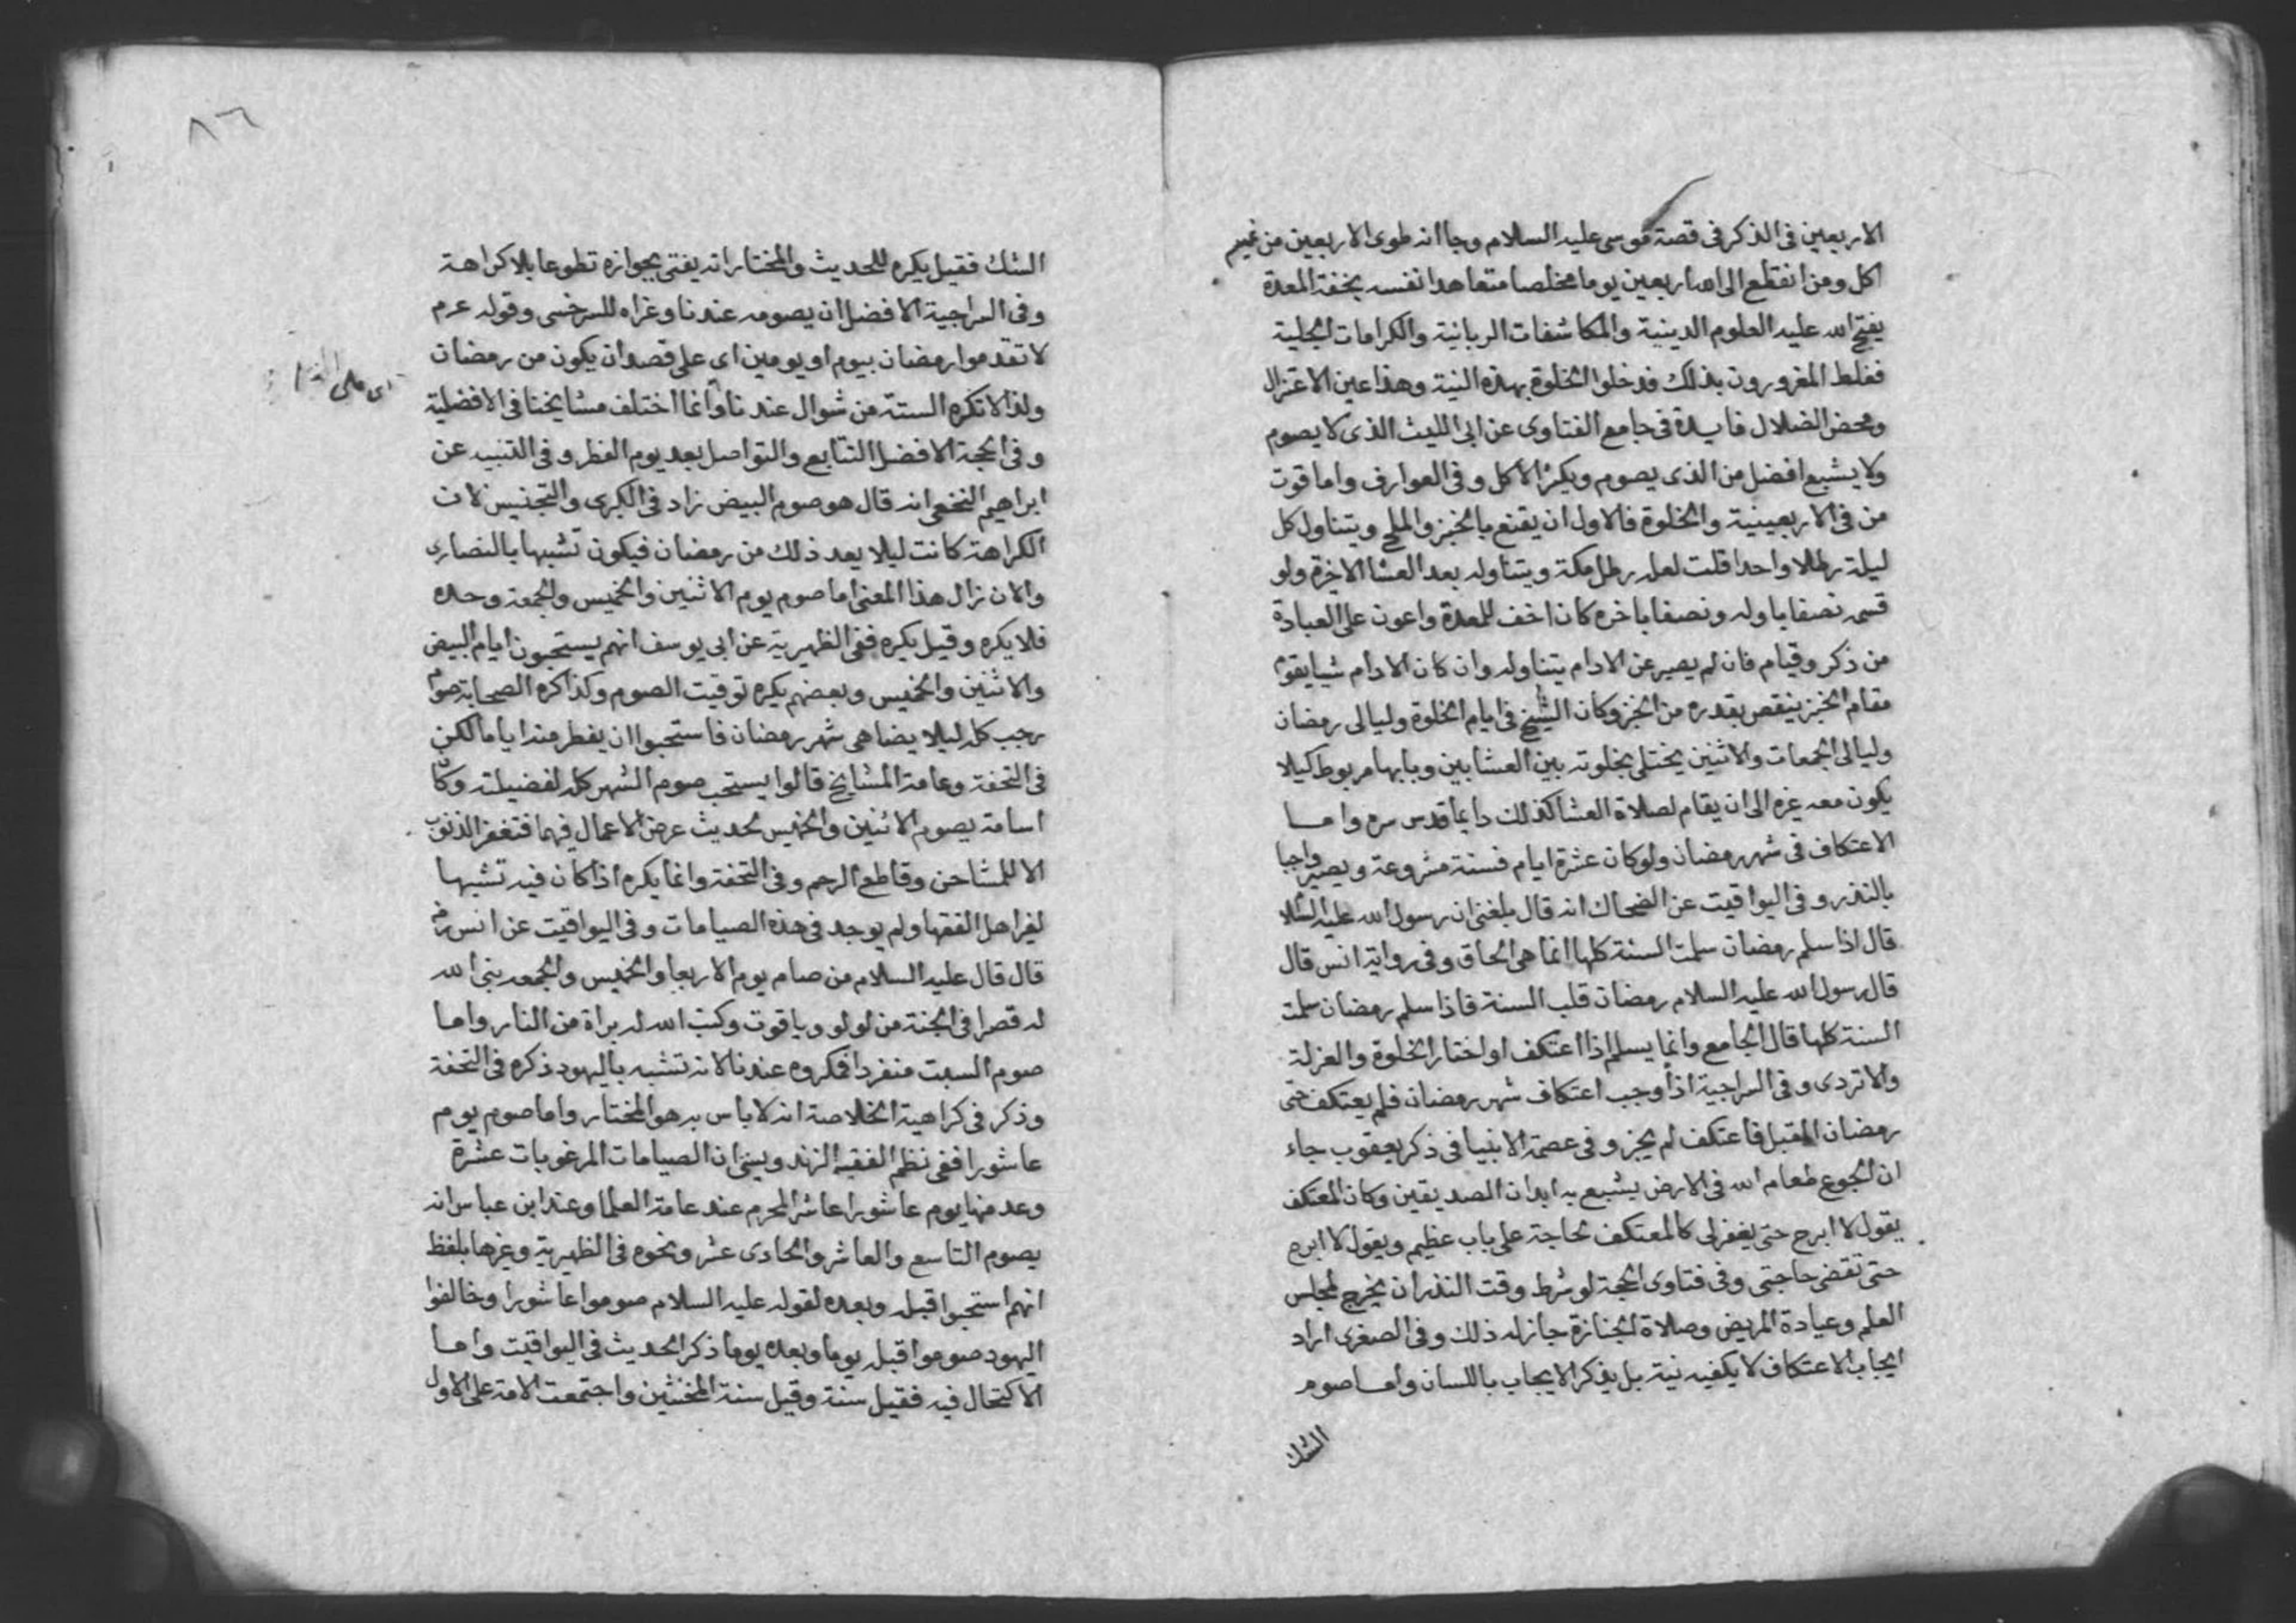 الاربعين فى الذكر فى قصة موسى عليه السلام وجا انه طوى الاربعين من غير
اكل ومن انقطع الى الله اربعين يوما مخلصا متعاهدا نفسه بخفة المعدة
يفتح الله عليه العلوم الدينية والمكاشفات الربانية والكرامات الجلية
فغلط المغرورون بذلك فدخلوا الخلوة بهذه النية وهذا عين الاعتزال
ومحض الضلال فايدة فى جامع الفتاوى عن ابى الليث الذى لا يصوم
ولا يشبع افضل من الذى يصوم ويكثر الاكل وفى العوارف واما قوت
من فى الاربعينية والخلوة فالاول ان يقنع بالخبز والملح ويتناول كل
ليلة رطلا واحدا قلت لعله رطل مكة ويتناوله بعد العشا الاخرة ولو
قسمه نصفا باوله ونصفا باخره كان اخف للمعدة واعون على العبادة
من ذكر وقيام فان لم يصبر عن الادام يتناوله وان كان الادام شيا يقوم
مقام الخبز ينقص بقدره من الخبز وكان الشيخ فى ايام الخلوة وليالى رمضان
وليالى الجمعات والاثنين يختلى بخلوته بين العشابين وبابها مربوط كيلا
يكون معه غيره الى ان يقام لصلاة العشا كذلك دايما قدس سره واما
الاعتكاف فى شهر رمضان ولو كان عشرة ايام فسنة مشروعة ويصير واجبا
بالنذر وفى اليواقيت عن الضحاك انه قال بلغنى ان رسول الله عليه السلا
قال اذا سلم رمضان سلمت السنة كلها انما هى الحاق وفى رواية انس قال
قال رسول الله عليه السلام رمضان قلب السنة فاذا سلم رمضان سلمت
السنة كلها قال الجامع وانما يسلم اذا اعتكف او اختار الخلوة والعزلة
والا تردى وفى السراجية اذا وجب اعتكاف شهر رمضان فلم يعتكف حتى
رمضان المقبل فاعتكف لم يجز وفى عصمة الانبيا فى ذكر يعقوب جاء
ان الجوع طعام الله فى الارض يشبع به ابدان الصديقين وكان المعتكف
يقول لا ابرح حتى يغفر لى كالمعتكف لحاجة على باب عظيم ويقول لا ابرح
حتى تقضى حاجتى وفى فتاوى الحجة لو شرط وقت النذر ان يخرج لمجلس
العلم وعيادة المريض وصلاة الجنازة جاز له ذلك وفى الصغرى اراد
ايجاب الاعتكاف لا يكفيه نية بل يذكر الايجاب باللسان واما صوم
الشك
٨٦
الشك فقيل يكره للحديث والمختار انه يفتى بجوازه تطوعا بلا كراهة
وفى السراجية الافضل ان يصومه عندنا وعزاه للسرخسى وقوله عرم
لا تقدموا رمضان بيوم او يومين اى على قصد ان يكون من رمضان
ولذا لا تكره الستة من شوال عندنا وانما اختلف مشايخنا فى الافضلية
وفى الحجة الافضل التتابع والتواصل بعد يوم الفطر وفى التنبيه عن
ابراهيم النخعى انه قال هو صوم البيض زاد فى الكبرى والتجنيس لان
الكراهة كانت ليلا يعد ذلك من رمضان فيكون تشبها بالنصارى
والان زال هذا المعنى اما صوم يوم الاثنين والخميس والجمعة وحده
فلا يكره وقيل يكره ففى الظهيرية عن ابى يوسف انهم يستحبون ايام البيض
والاثنين والخميس وبعضهم يكره توقيت الصوم وكذا كره الصحابة صوم
رجب كله ليلا يضاهى شهر رمضان فاستحبوا ان يفطر منه اياما لكن
فى التحفة وعامة المشايخ قالوا يستحب صوم الشهر كله لفضيلته وكان
اسامة يصوم الاثنين والخميس لحديث عرض الاعمال فيهما فتغفر الذنوب
الا للمشاحن وقاطع الرحم وفى التحفة وانما يكره اذا كان فيه تشبها
لغير اهل الفقها ولم يوجد فى هذه الصيامات وفى اليواقيت عن انس رض
قال قال عليه السلام من صام يوم الاربعا والخميس والجمعه بنى الله
له قصرا فى الجنة من لولو وياقوت وكتب الله له براة من النار واما
صوم السبت منفردا فمكروه عندنا لانه تشبه باليهود ذكره فى التحفة
وذكر فى كراهية الخلاصة انه لا باس به هو المختار واما صوم يوم
عاشورا ففى نظم الفقيه الزندويسى ان الصيامات المرغوبات عشرة
وعد منها يوم عاشورا عاشر المحرم عند عامة العلما وعند ابن عباس انه
يصوم التاسع والعاشر والحادى عشر ونحوه فى الظهيرية وغيرها بلفظ
انهم استحبوا قبله وبعده لقوله عليه السلام صوموا عاشورا وخالفوا
اليهود صوموا قبله يوما وبعده يوما ذكر الحديث فى اليواقيت واما
الاكتحال فيه فقيل سنة وقيل سنة المخنثين واجتمعت الامة على الاول